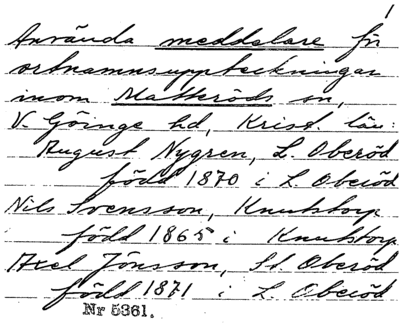 1
Använda meddelare för
ortnamnsuppteckningar
inom Matteröds sn,
V. Göinge hd, Krist. län:
August Nygren, L. Oberöd
född 1870 i L. Oberöd
Nils Svensson, Knutstorp
född 1865 i Knutstorp
Axel Jönsson, St. Oberöd
född 1871 i L. Oberöd
Nr 5361.